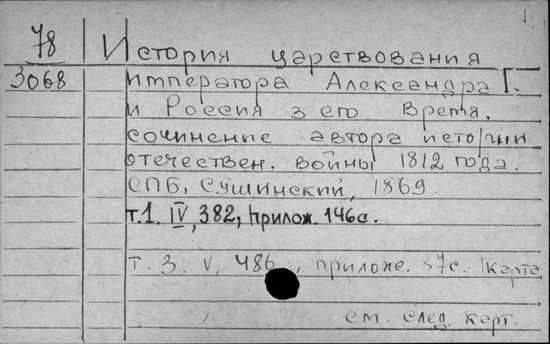 1.
78 История царствования
3068 императора Александра I.
и Россия в его время.
сочинение автора истории
отечествен. войны 1812 года.
СПБ, Сущинский, 1869.
т.1. IV, 382, прилож. 146с.
т. 3. V, 486, приложе. 37с. карта
см. след. карт.